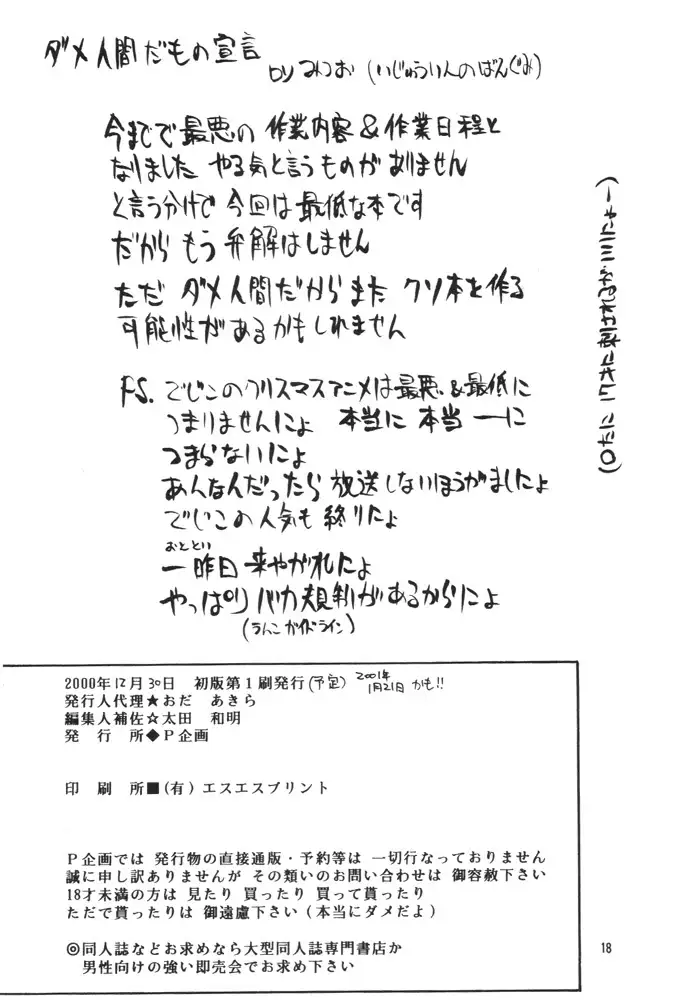 ダメ人間だもの宣言
by みつお (いじゅういんのばんぐみ)
今までで最悪の 作業内容&作業日程と
なりました やる気と言うものがありません
と言う分けで 今回は最低な本です
だから もう 弁解はしません
ただ ダメ人間だからまた クソ本を作る
可能性があるかもしれません
P.S. でじこのクリスマスアニメは最悪&最低に
つまりませんにょ 本当に 本当ーーに
つまらないにょ
あんなんだったら 放送しないほうがましにょ
でじこの人気も 終りにょ
おととい
一昨日 来やがれにょ
やっぱり バカ規制があるからにょ
(うんこガイドライン)
2000年12月30日 初版第1刷発行(予定) 2001年
1月21日 かも!!
発行人代理★おだ あきら
編集人補佐☆太田 和明
発 行 所◆P企画
印 刷 所■(有)エスエスプリント
P企画では 発行物の直接通版・予約等は 一切行なっておりません
誠に申し訳ありませんが その類いのお問い合わせは 御容赦下さい
18才未満の方は 見たり 買ったり 買って貰ったり
ただで貰ったりは 御遠慮下さい(本当にダメだよ)
◎同人誌などお求めなら大型同人誌専門書店か
男性向けの強い即売会でお求め下さい
18